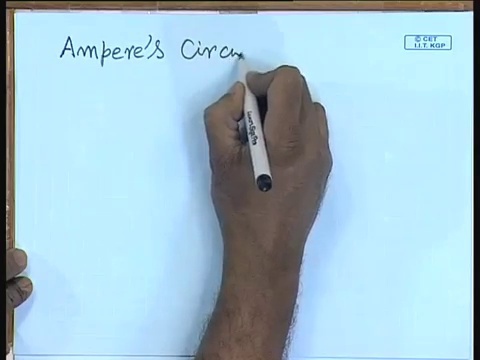 Ampere's Circu
© CET
I.I.T. KGP